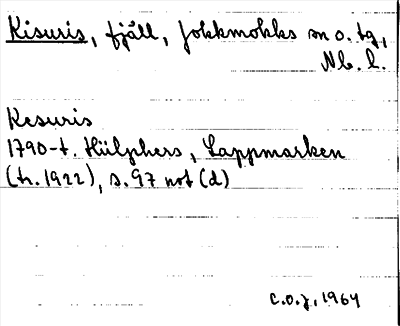 Kisuris, fjäll, Jokkmokks sn o. tg,
Nb. l.
Kesuris
1790-t. Hülphers, Lappmarken
(tr. 1922), s. 97 not (d)
C.O.J, 1964